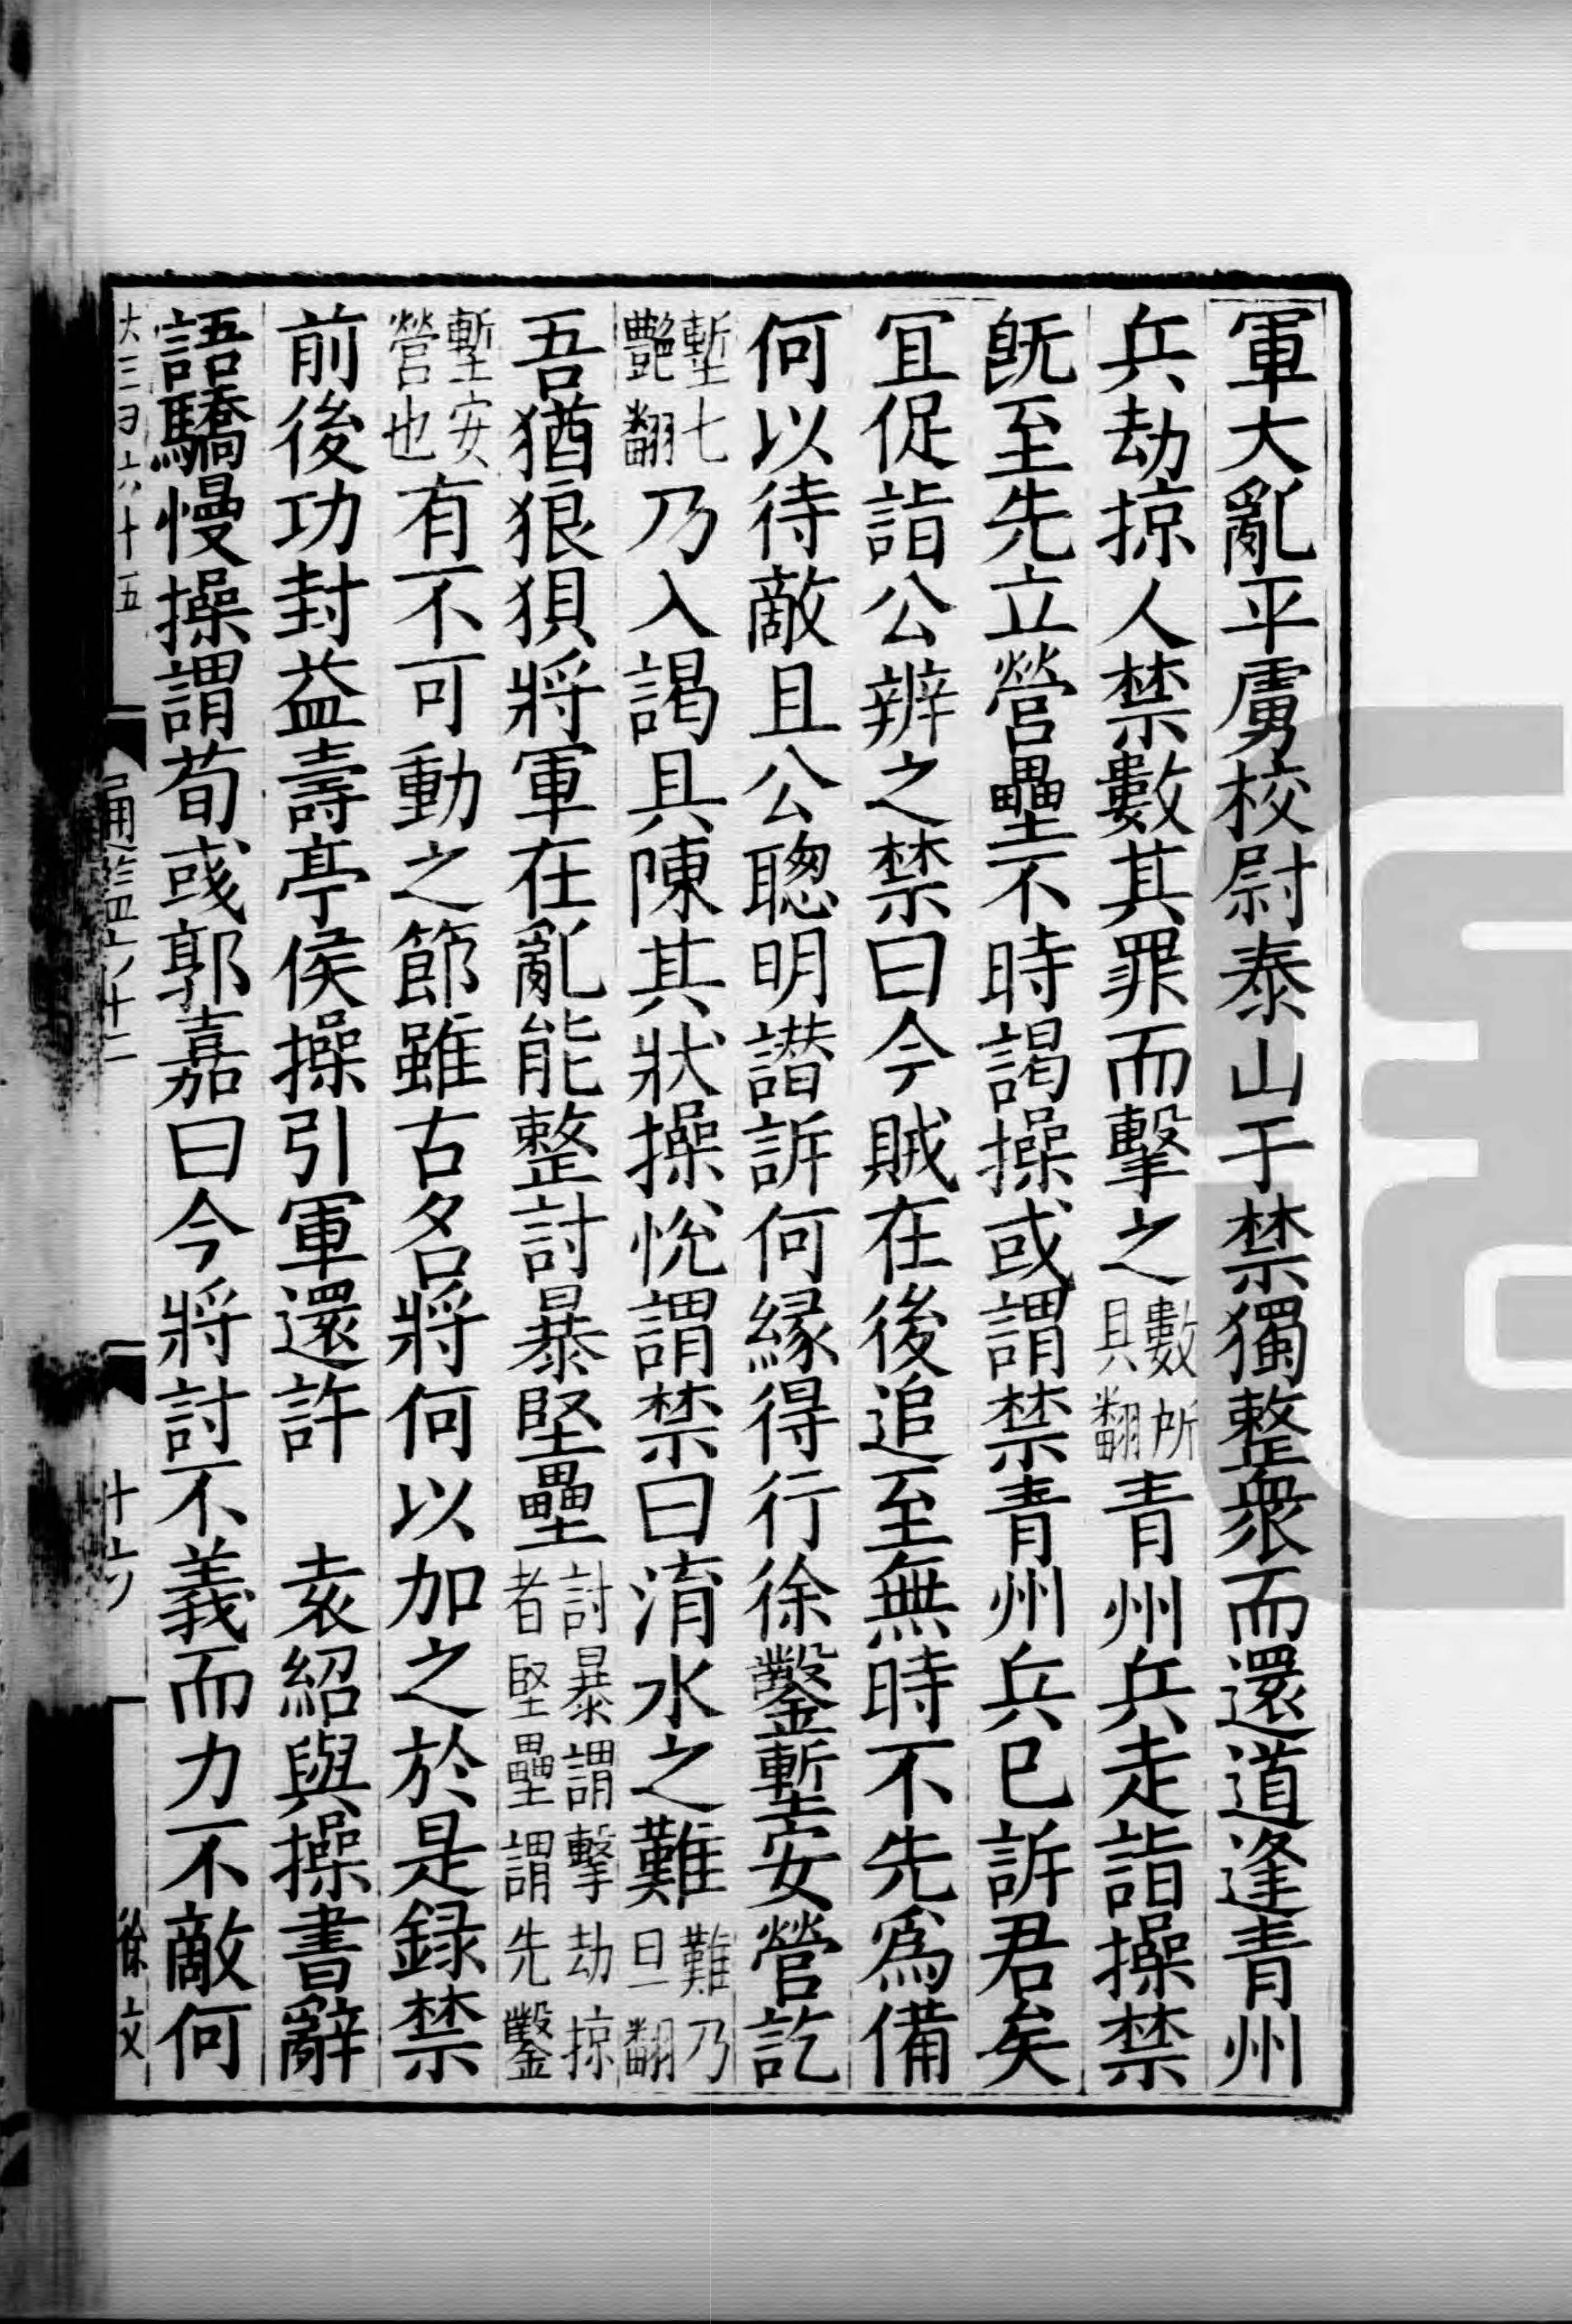 軍大亂平虜校尉泰山于禁獨整衆而還道逢青州
兵劫掠人禁數其罪而擊之數所具翻青州兵走詣操禁
旣至先立營壘不時謁操或謂禁青州兵已訴君矣
冝促詣公辨之禁曰今賊在後追至無時不先爲備
何以待敵且公聰明譖訴何縁得行徐鑿塹安營訖
塹七豔翻乃入謁具陳其狀操恱謂禁曰淯水之難難乃旦翻
吾猶狼狽將軍在亂能整討暴堅壘討暴謂擊劫掠者堅壘謂先鑿
塹安營也有不可動之節雖古名將何以加之於是録禁
前後功封益壽亭侯操引軍還許　袁紹與操書辭
語驕慢操謂荀彧郭嘉曰今將討不義而力不敵何
十六
徐文